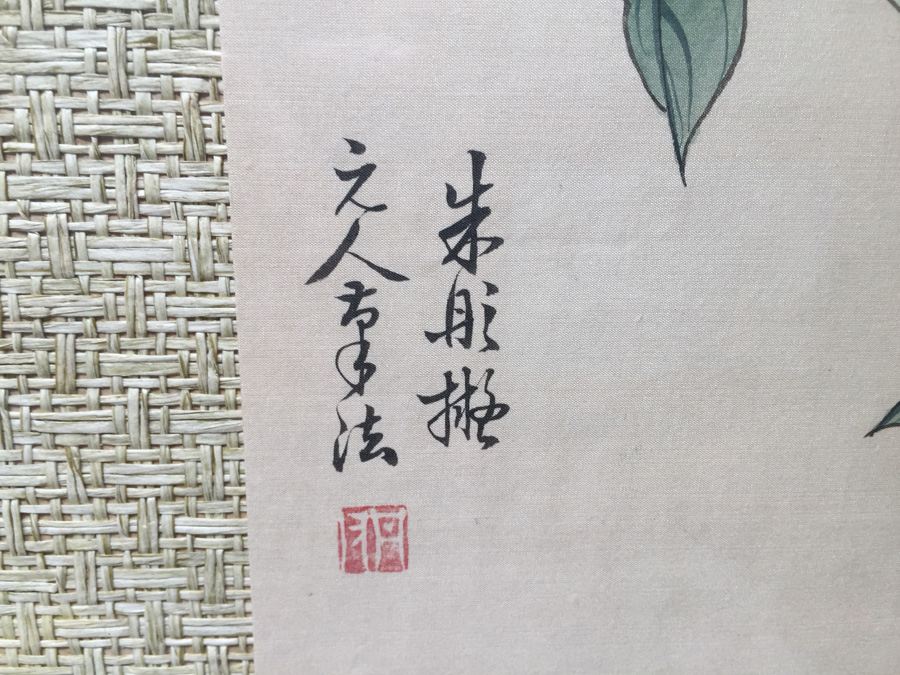 朱彤擬
元人筆法